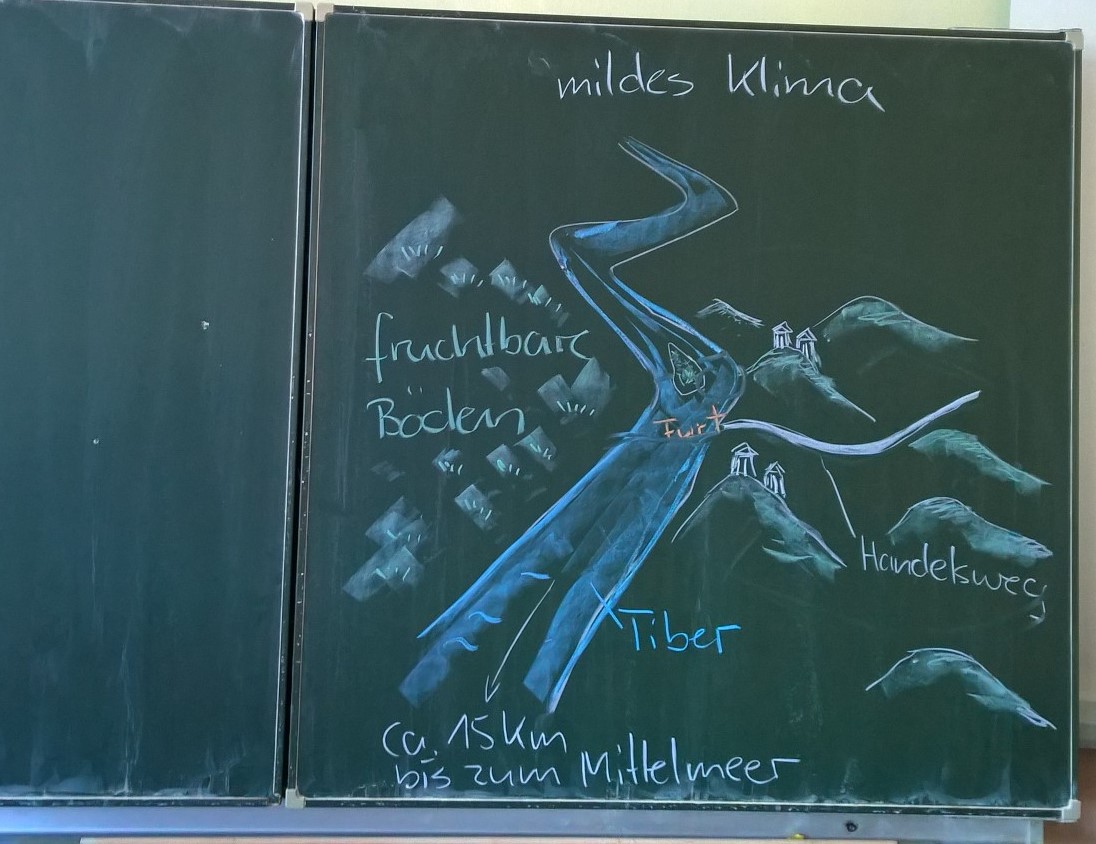 mildes Klima
fruchtbare
Böden
Furt
Handelsweg
Tiber
ca. 15 km
bis zum Mittelmeer